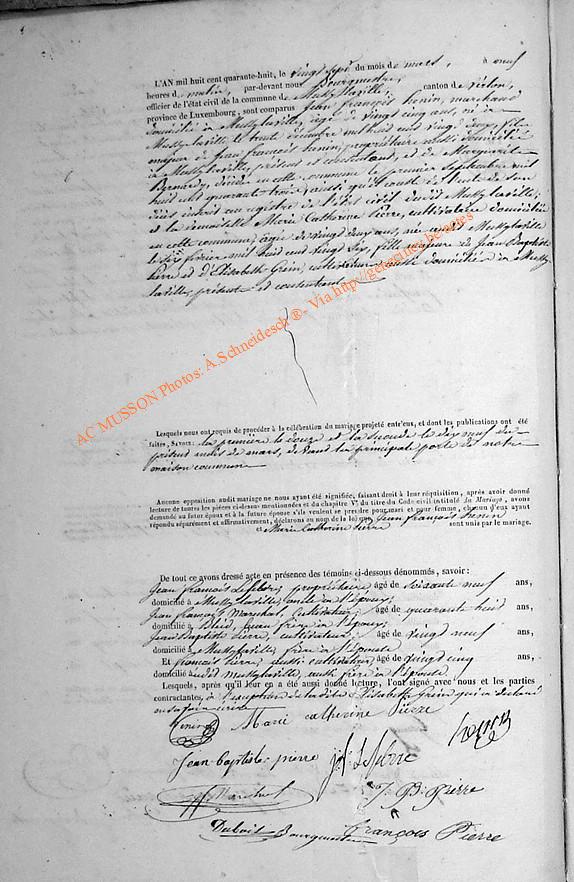 L'AN mil huit cent quarante-huit, le vingt sept du mois de mars, à neuf
heures du matin, par-devant nous Bourgmestre,
officier de l'état civil de la commune de Mussy-la-ville, canton de Virton,
province de Luxembourg, sont comparus Jean françois henin, marchand
domicilié à Mussy laville, âgé de vingt cinq ans, né à
Mussy laville le trente décembre mil huit cent vingt deux, fils
majeur de Jean françois henin, propriétaire aussi domicilié
à Mussy laville, présent et consentant, et de Marguerite
Bernardy, décédée en cette commune le premier septembre mil
huit cent quarante trois, ainsi qu'il conste de l'acte de son
décès inscrit au registre de l'état civil dudit Mussy la ville;
et la demoiselle Marie Catherine Pierre, cultivatrice domiciliée
en cette commune, âgée de vingt deux ans, née audit Mussy laville
le six février mil huit cent vingt six, fille majeure de Jean Baptiste
Pierre et d'Elisabeth Grein, cultivateurs aussi domiciliés à Mussy
laville, présents et consentants
AC MUSSON Photos: A.Schneidesch ®- Via http://geneactes.be/actes
Lesquels nous ont requis de procéder à la célébration du mariage projeté entr'eux, et dont les publications ont été
faites, SAVOIR: la première le douze et la seconde le dix neuf du
présent mois de mars, devant la principale porte de notre
maison commune
Aucune opposition audit mariage ne nous ayant été signifiée, faisant droit à leur réquisition, après avoir donné
lecture de toutes les pièces ci-dessus mentionnées et du chapitre VI du titre du Code civil intitulé du Mariage, avons
demandé au futur époux et à la future épouse s'ils veulent se prendre pour mari et pour femme, chacun d'eux ayant
répondu séparément et affirmativement, déclarons au nom de la loi que Jean françois henin
et Marie Catherine Pierre sont unis par le mariage.
De tout ce avons dressé acte en présence des témoins ci-dessous dénommés, savoir:
Jean francois Lefebvre, propriétaire âgé de soixante neuf ans,
domicilié à Mussy laville, oncle à l'époux;
Jean françois Marechal, cultivateur, âgé de quarante huit ans,
domicilié à Bleid, beau frère à l'époux;
Jean Baptiste Pierre, cultivateur, âgé de vingt neuf ans,
domicilié à Mussy laville, frère à l'épouse
Et françois Pierre, aussi cultivateur, âgé de vingt cinq ans,
domicilié audit Mussy laville, aussi frère à l'épouse.
Lesquels, après qu'il leur en a été aussi donné lecture, l'ont signé avec nous et les parties
contractantes, à l'exception de ladite Elisabeth Grein qui a déclaré
ne savoir écrire
henin Marie catherine Pierre
Jean baptiste pierre j.f. Lefevre henin
Marechal J. B. Pierre
Dubois Bourgmestre françois Pierre